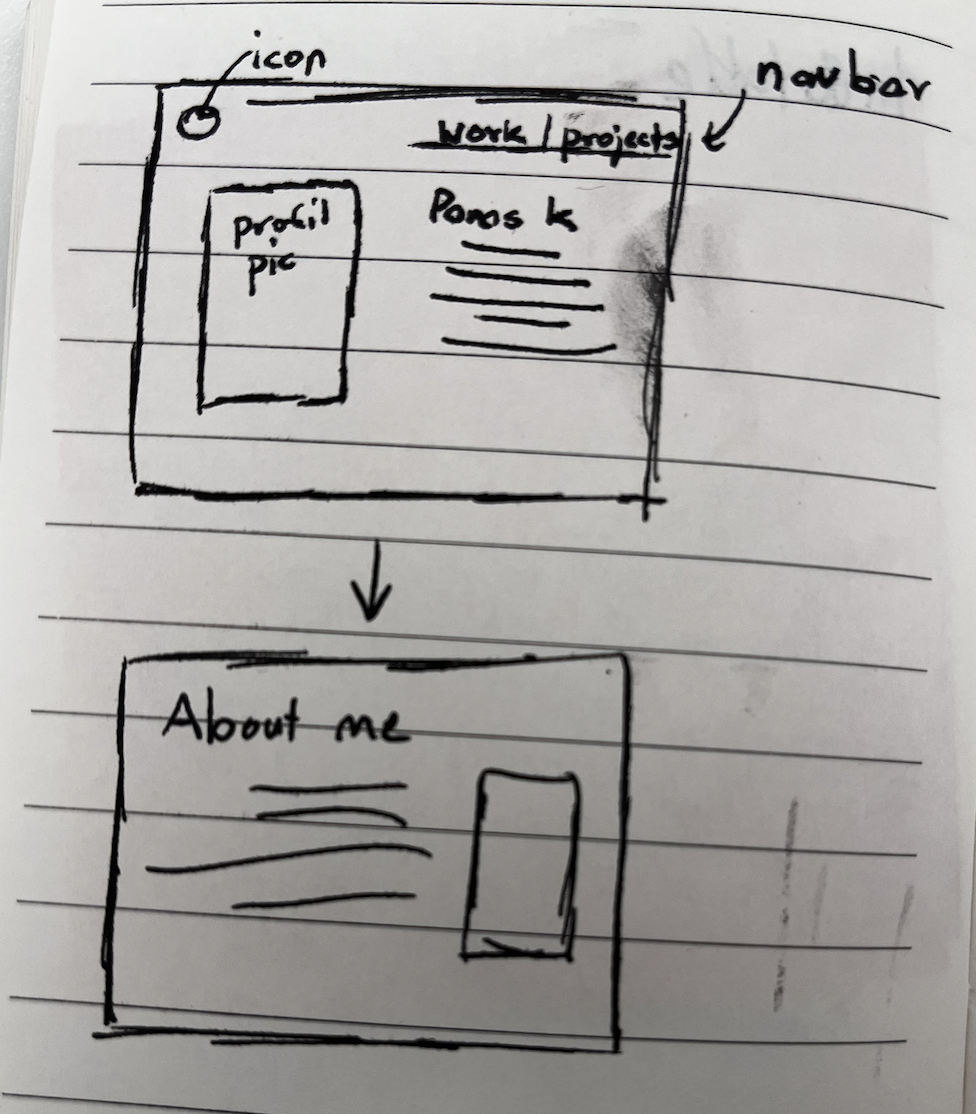 icon
navbar
work / projects
profil
pic
Paras k
About me